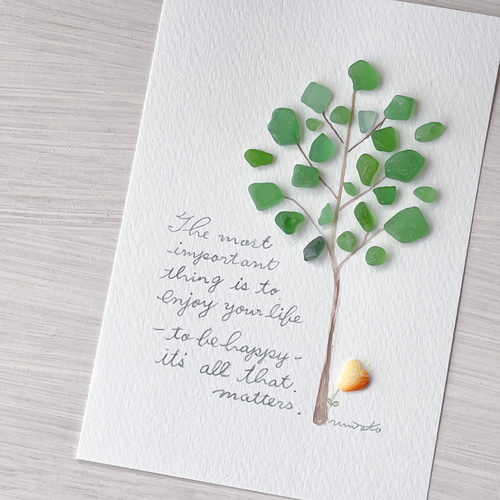 The most
important
thing is to
enjoy your life
-to be happy-
it's all that
matters.